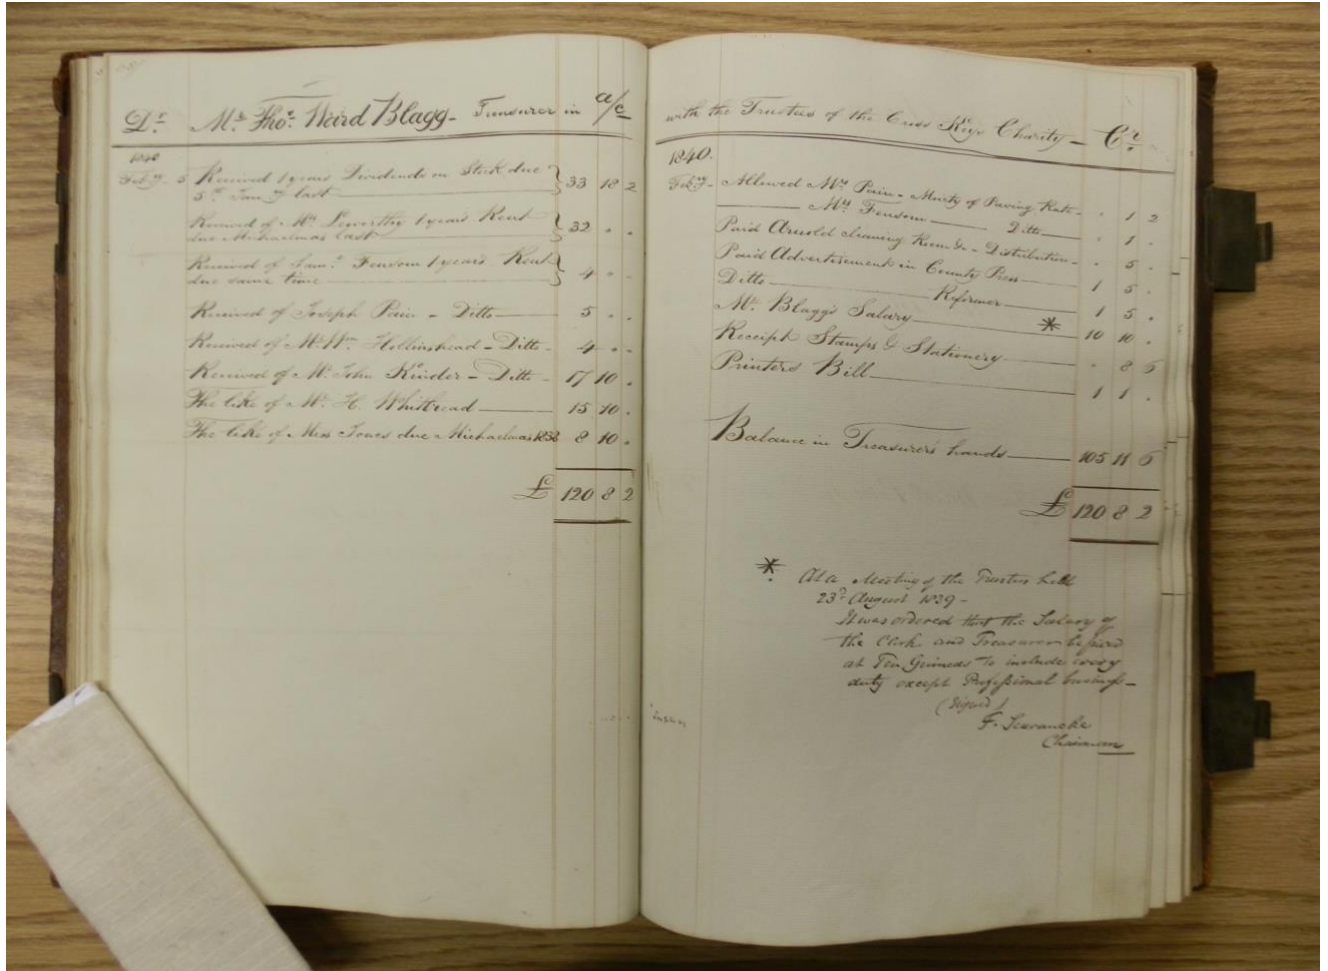 Dr. Mr. Thos. Ward Blagg - Treasurer in a/c
1840
Feby. 5 Received 1 years Dividends on Stock due
5th Jany last 33 18 2
Received of Mr. 1 years Rent
due Michaelmas last 32 " "
Received of Saml. Fensom 1 years Rent
due same time 4 " "
Received of Joseph Pain - Ditto 5 " "
Received of Mr. Wm. Hollinshead - Ditto - 4 " "
Received of Mr. John Kinder - Ditto - 17 10 "
The like of Mr. H. Whitbread 15 10 "
The like of Miss Jones due Michaelmas 1838 8 10 "
£ 120 8 2
with the Trustees of the Cross Keys Charity - Cr.
1840.
Feby. - Allowed Mr. Pain - Moiety of Paving Rate - " 1 2
Mr. Fensom Ditto " 1 "
Paid Arnold cleaning Room &c - Distribution - " 5 "
Paid Advertisement in County Press 1 5 "
Ditto Reformer 1 5 "
Mr. Blagg's Salary * 10 10 "
Receipt Stamps & Stationery " 8 6
Printers Bill 1 1 "
Balance in Treasurer's hands 105 11 6
£ 120 8 2
* At a Meeting of the Trustees held
23d August 1839 -
It was ordered that the Salary of
the Clerk and Treasurer be fixed
at Ten Guineas to include every
duty except Professional business -
(Signed)
F.
Chairman